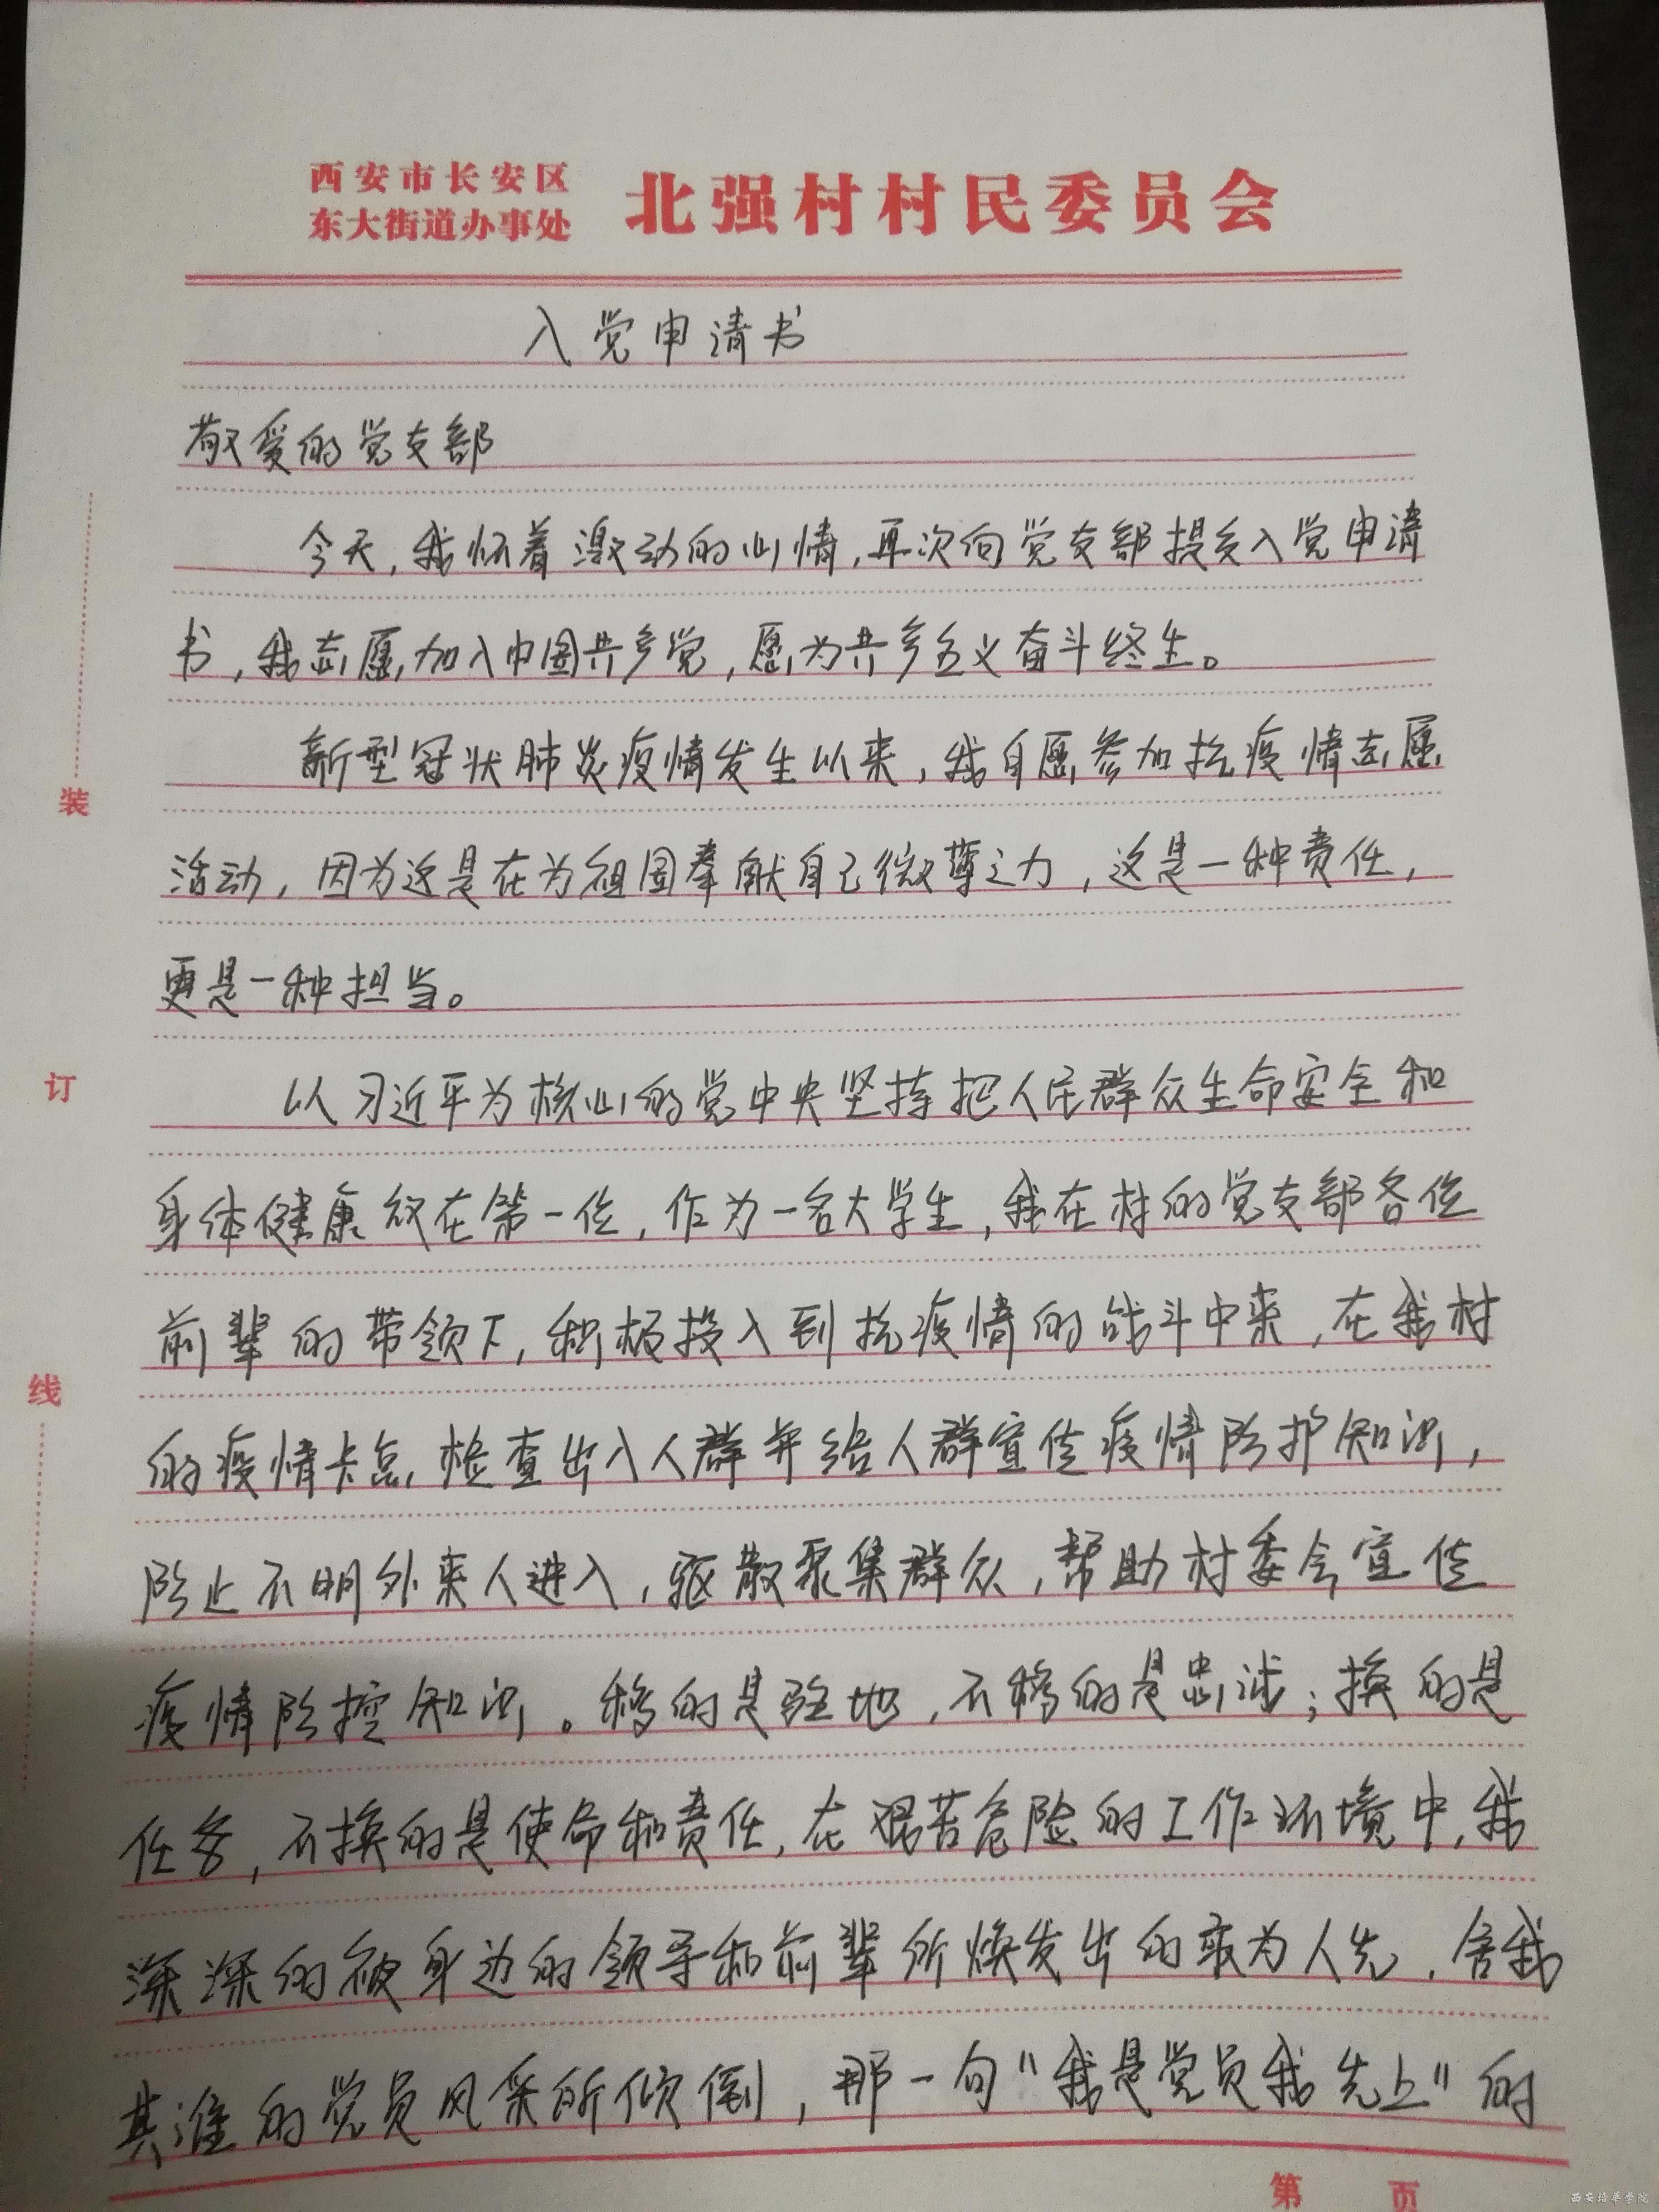 西安市长安区
东大街道办事处
北强村村民委员会
入党申请书
敬爱的党支部
今天，我怀着激动的心情，再次向党支部提交入党申请
书，我志愿加入中国共产党，愿为共产主义奋斗终生。
新型冠状肺炎疫情发生以来，我自愿参加抗疫情志愿
活动，因为这是在为祖国奉献自己微薄之力，这是一种责任，
更是一种担当。
以习近平为核心的党中央坚持把人民群众生命安全和
身体健康放在第一位，作为一名大学生，我在村的党支部各位
前辈的带领下，积极投入到抗疫情的战斗中来，在我村
的疫情卡点，检查出入人群并给人群宣传疫情防护知识，
防止不明外来人进入，驱散聚集群众，帮助村委会宣传
疫情防控知识。移的是驻地，不移的是忠诚；换的是
任务，不换的是使命和责任，在艰苦危险的工作环境中，我
深深的被身边的领导和前辈所焕发出的敢为人先，舍我
其谁的党员风采所倾倒，那一句“我是党员我先上”的
装
订
线
第 页
西安培华学院